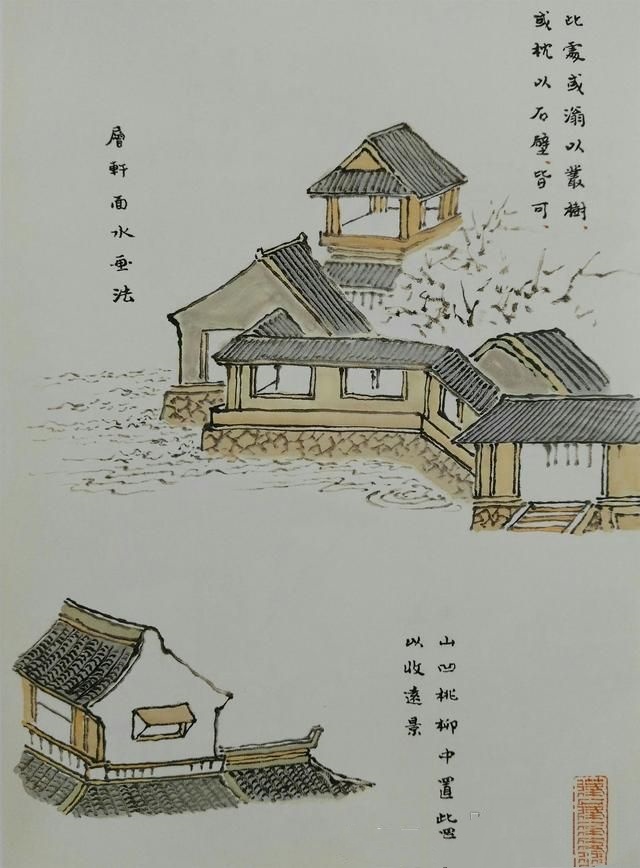 此處或滃以叢樹
或枕以石壁皆可
層軒面水画法
山凹桃柳中置此
以收遠景